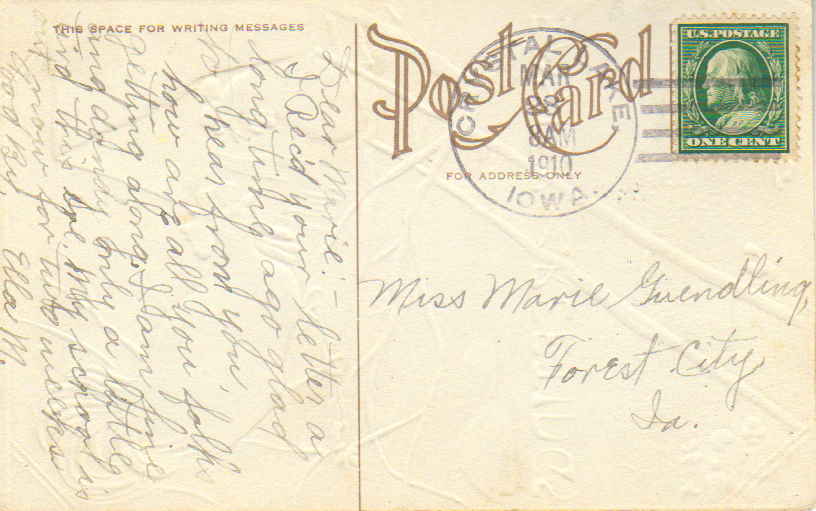 THIS SPACE FOR WRITING MESSAGES
Dear Marie! –
I Rec'd your letter a
long time ago glad
to hear from you,
how are all you folks
getting along. I am fine
and dandy only a little
this eve. My school is
out now for two weeks
Good By, Ella M.
Post Card
FOR ADDRESS ONLY
CRYSTAL LAKE,
MAR
8AM
1910
IOWA
U.S. POSTAGE
ONE CENT
Miss Marie Guendling,
Forest City
Ia.